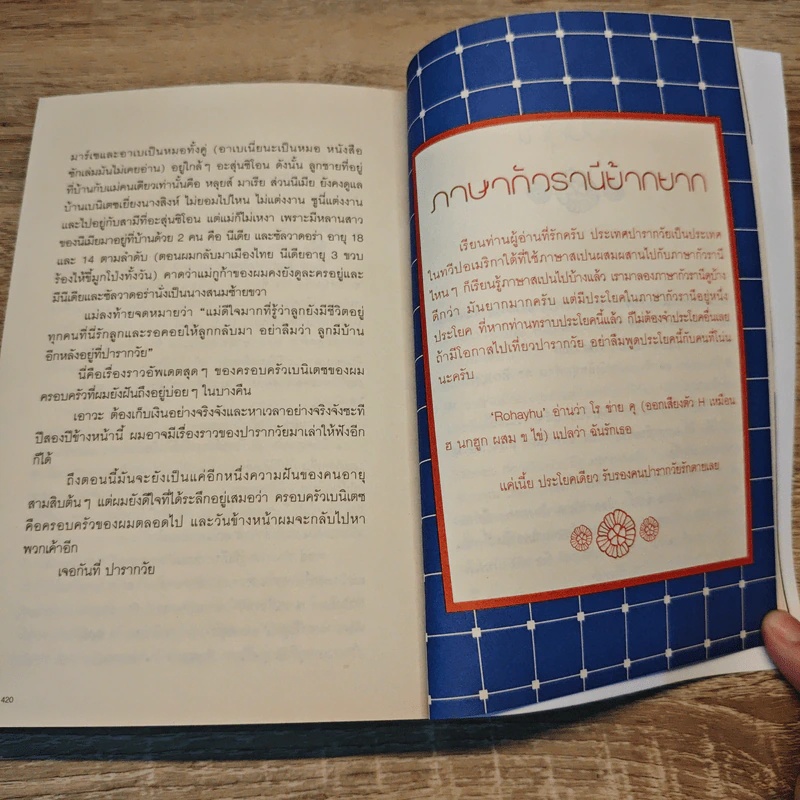 มาร์เซและอาเบเป็นหมอทั้งคู่ (อาเบเนี่ยนะเป็นหมอ หนังสือ
ซักเล่มมันไม่เคยอ่าน) อยู่ใกล้ๆ อะสุ่นซิโอน ดังนั้น ลูกชายที่อยู่
ที่บ้านกับแม่คนเดียวเท่านั้นคือ หลุยส์ มาเรีย ส่วนนีเมีย ยังคงดูแล
บ้านเบนิเตซเยี่ยงนางสิงห์ ไม่ยอมไปไหน ไม่แต่งงาน ซูนี่แต่งงาน
และไปอยู่กับสามีที่อะสุ่นซิโอน แต่แม่ก็ไม่เหงา เพราะมีหลานสาว
ของนีเมียมาอยู่ที่บ้านด้วย 2 คน คือ นีเดีย และซัลวาดอร่า อายุ 18
และ 14 ตามลำดับ (ตอนผมกลับมาเมืองไทย นีเดียอายุ 3 ขวบ
ร้องไห้ขี้มูกโป่งทั้งวัน) คาดว่าแม่กูก้าของผมคงยังดูละครอยู่และ
มีนีเดียและซัลวาดอร่านั่งเป็นนางสนมซ้ายขวา
แม่ลงท้ายจดหมายว่า “แม่ดีใจมากที่รู้ว่าลูกยังมีชีวิตอยู่
ทุกคนที่นี่รักลูกและรอคอยให้ลูกกลับมา อย่าลืมว่า ลูกมีบ้าน
อีกหลังอยู่ที่ปารากวัย”
นี่คือเรื่องราวอัพเดตสุดๆ ของครอบครัวเบนิเตซของผม
ครอบครัวที่ผมยังฝันถึงอยู่บ่อยๆ ในบางคืน
เอาวะ ต้องเก็บเงินอย่างจริงจังและหาเวลาอย่างจริงจังซะที
ปีสองปีข้างหน้านี้ ผมอาจมีเรื่องราวของปารากวัยมาเล่าให้ฟังอีก
ก็ได้
ถึงตอนนี้มันจะยังเป็นแค่อีกหนึ่งความฝันของคนอายุ
สามสิบต้นๆ แต่ผมยังดีใจที่ได้ระลึกอยู่เสมอว่า ครอบครัวเบนิเตซ
คือครอบครัวของผมตลอดไป และวันข้างหน้าผมจะกลับไปหา
พวกเค้าอีก
เจอกันที่ ปารากวัย
420
ภาษากัวรานีย้ากยาก
เรียนท่านผู้อ่านที่รักครับ ประเทศปารากวัยเป็นประเทศ
ในทวีปอเมริกาใต้ที่ใช้ภาษาสเปนผสมผสานไปกับภาษากัวรานี
ไหนๆ ก็เรียนรู้ภาษาสเปนไปบ้างแล้ว เรามาลองภาษากัวรานีดูบ้าง
ดีกว่า มันยากมากครับ แต่มีประโยคในภาษากัวรานีอยู่หนึ่ง
ประโยค ที่หากท่านทราบประโยคนี้แล้ว ก็ไม่ต้องจำประโยคอื่นเลย
ถ้ามีโอกาสไปเที่ยวปารากวัย อย่าลืมพูดประโยคนี้กับคนที่โน่น
นะครับ
‘Rohayhu’ อ่านว่า โร ข่าย คุ (ออกเสียงตัว H เหมือน
ฮ นกฮูก ผสม ข ไข่) แปลว่า ฉันรักเธอ
แค่เนี้ย ประโยคเดียว รับรองคนปารากวัยรักตายเลย